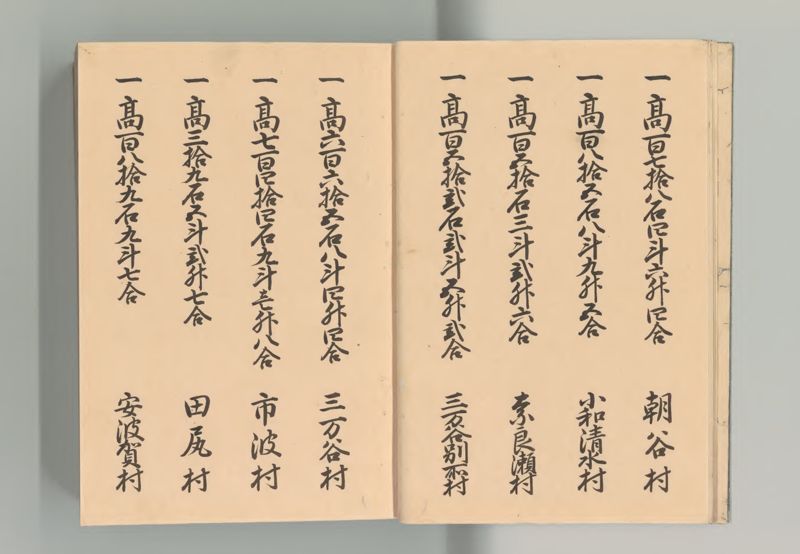 一 高百七拾八石四斗六升四合 朝谷村
一 高百八拾五石八斗九升五合 小和清水村
一 高百五拾石三斗弐升六合 奈良瀬村
一 高百五拾弐石弐斗五升弐合 三万谷別所村
一 高六百六拾五石八斗四升四合 三万谷村
一 高七百四拾四石九斗壱升八合 市波村
一 高三拾九石五斗弐升七合 田尻村
一 高百八拾九石九斗七合 安波賀村